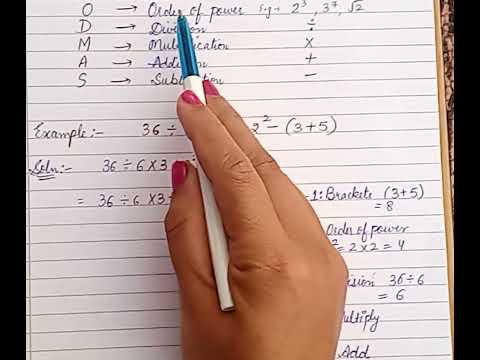 O → Order of power Eg:- 2³, 3⁷, √2
D → Division ÷
M → Multiplication ×
A → Addition +
S → Subtraction −
Example:- 36 ÷ 2² − (3+5)
Soln:- 36 ÷ 6 × 3
= 36 ÷ 6 × 3
1: Brackets (3+5)
= 8
Order of power
² = 2 × 2 = 4
ision 36 ÷ 6
= 6
ultiply
Add